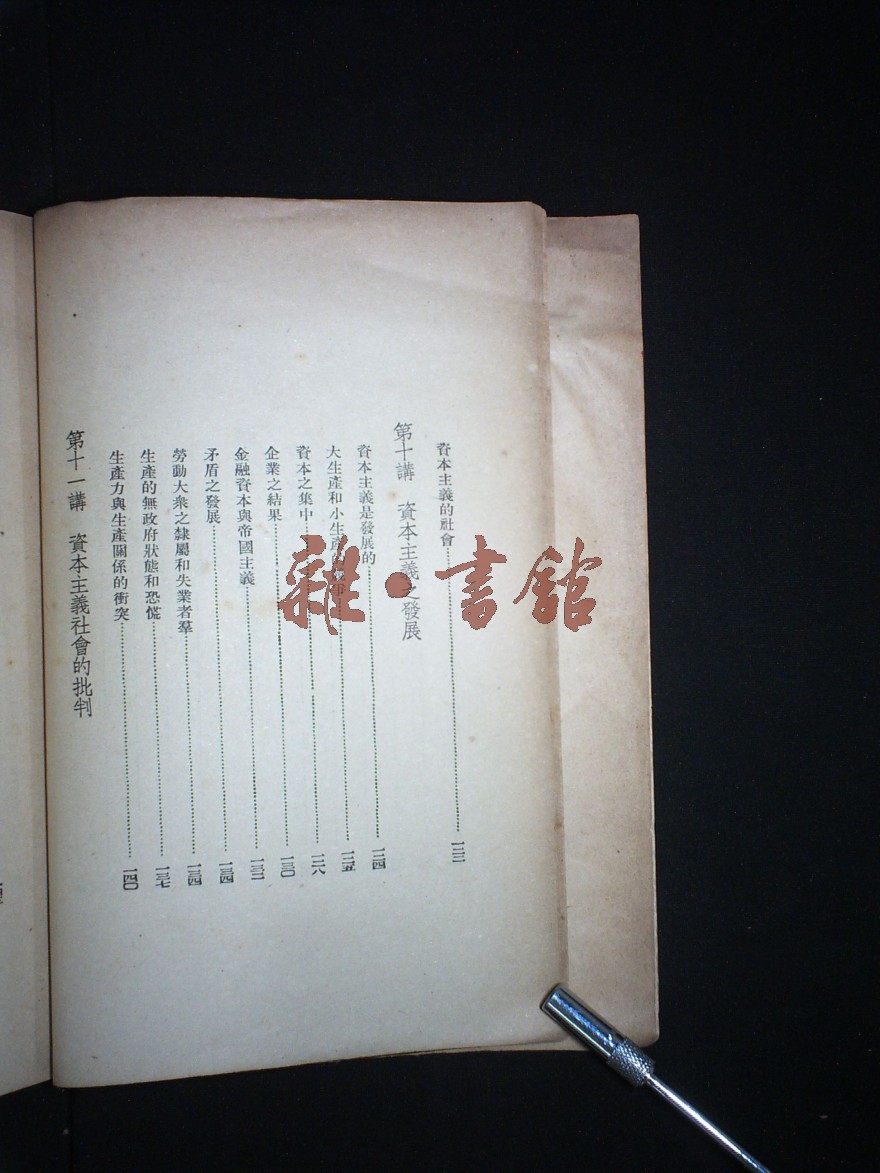 資本主義的社會……一二二
第十講 資本主義之發展
資本主義是發展的……一二四
大生產和小生產的爭……一二五
資本之集中……一二八
企業之結果……一三〇
金融資本與帝國主義……一三二
矛盾之發展……一三四
勞動大衆之隸屬和失業者羣……一三四
生產的無政府狀態和恐慌……一三七
生產力與生產關係的衝突……一四〇
第十一講 資本主義社會的批判
雜·書館